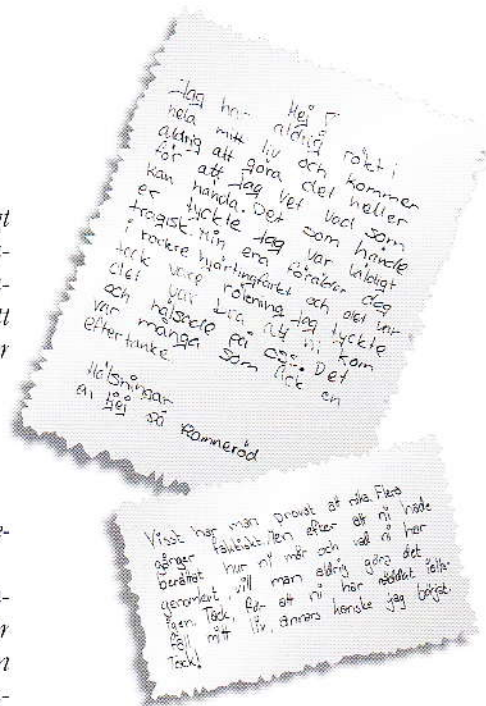 Hej !
Jag har aldrig rökt i
hela mitt liv och kommer
aldrig att göra det heller
för att jag vet vad som
kan hända. Det som hände
er tyckte jag var väldigt
tragisk. Min ena förälder dog
i hjärtingfarket och det var
tack vare rökening jag tyckte
det var bra att ni kom
och hälsade på Det
var många som fick en
eftertanke.
Hälsningar
en tjej på Ramneröd
Visst har man provat at röka. Flera
gånger faktiskt. Men efter att ni hade
berättat hur ni mår och vad ni har
genomlevt vill man aldrig göra det
igen. Tack, för att ni har räddat
fall mitt liv, annars kanske jag börjat.
Tack!